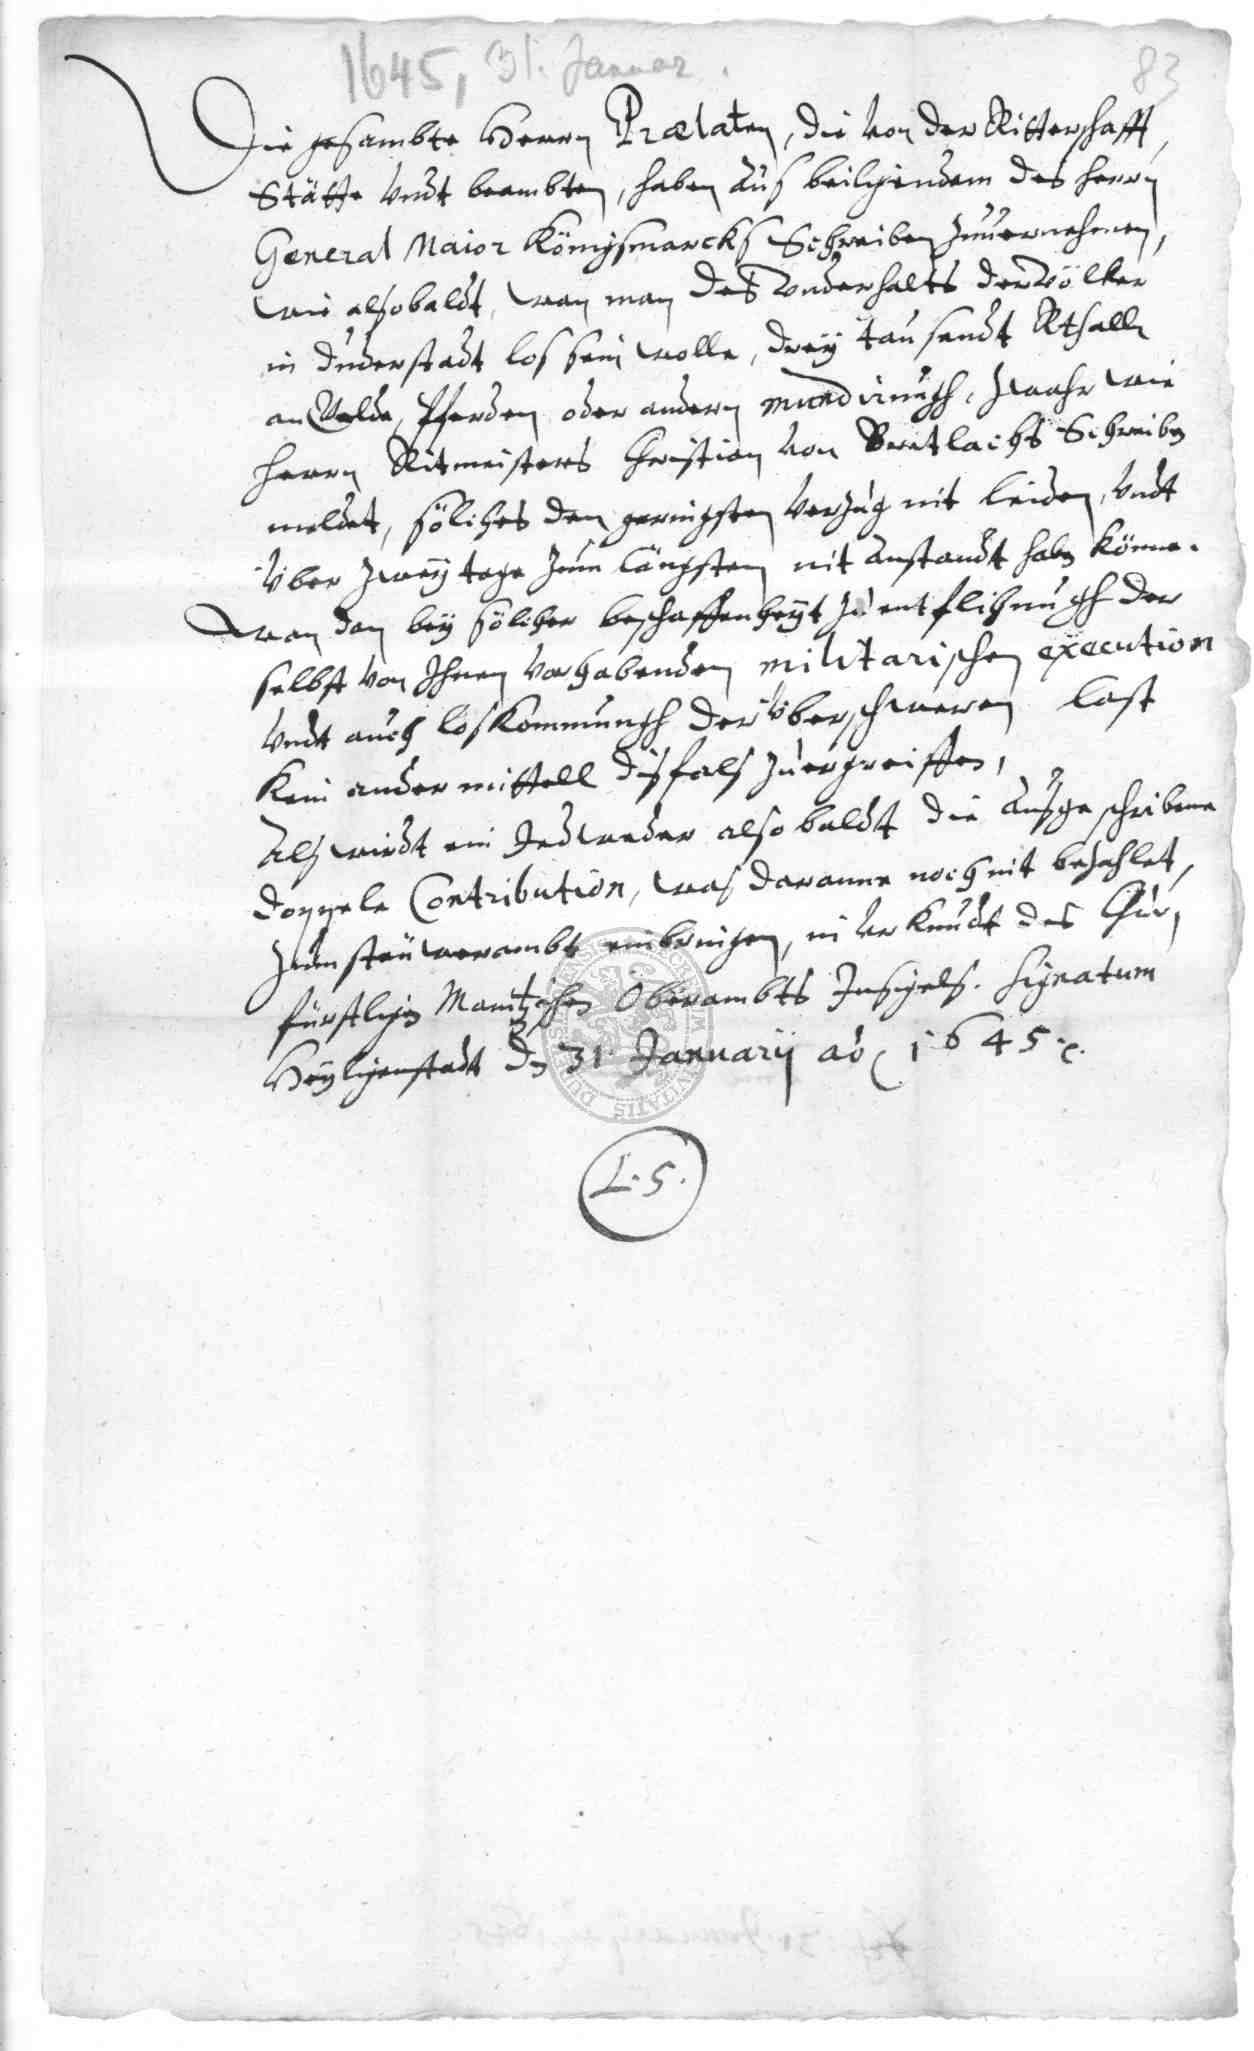 1645, 31. Januar.
83
Die gesambte Herrn Prælaten, die von der Ritterschafft,
Stätte vndt beambten, haben aus beiligendem des herrn
General Maior Königsmarcks Schreiben zuuernehmen,
wie alsobaldt, wan man des vnderhalts der völker
in duderstadt los sein wolle, drey tausendt Rthall
an Gelde, Pferden oder andern mundirungh, zwahr wie
herrn Ritmeisters Christian von Bretlachs Schreiben
meldet, söliches den geringsten verzug nit leiden, vndt
über zwey tage zum längsten nit anstandt haben könne.
wan dan bey sölicher beschaffenheyt zu entfliehungh der
selbst von Ihnen vorhabenden militarischen execution
vndt auch loskommungh der überschweren last
kein ander mittell disfals zuergreiffen,
Als wirdt ein Jedweder also baldt die ausgeschribene
doppele Contribution, was daranne noch nit bezahlet,
zum steüwerambt einbringen, in verkundt des Chur
fürstlichen Maintzischen Oberambts Insigels. Signatum
Heyligenstadt den 31. Januarij ao 1645.
L. S.